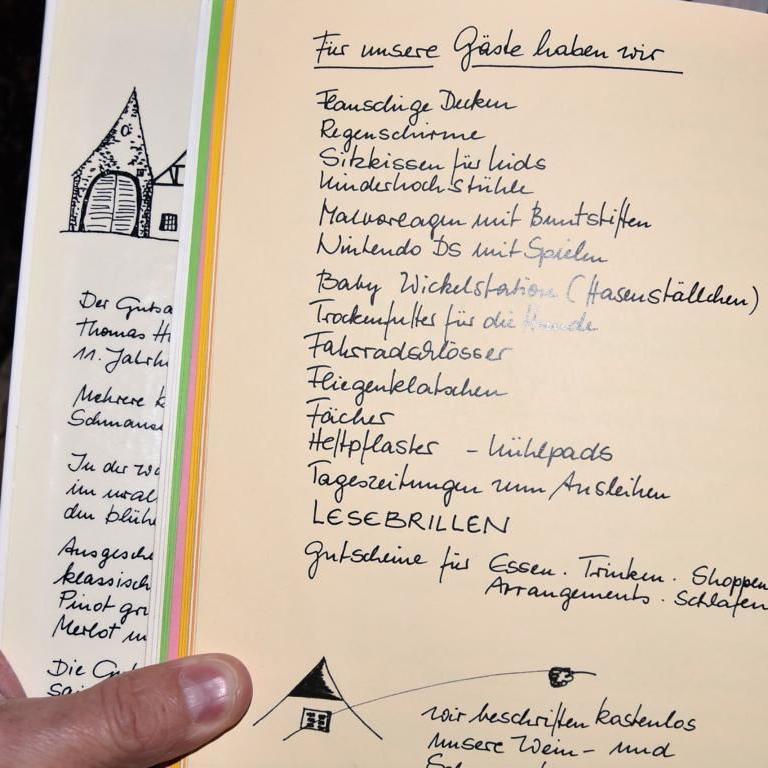 Für unsere Gäste haben wir
Flauschige Decken
Regenschirme
Sitzkissen für Kids
Kinderhochstühle
Malvorlagen mit Buntstiften
Nintendo DS mit Spielen
Baby Wickelstation (Hasenställchen)
Trockenfutter für die Hunde
Fahrradschlösser
Fliegenklatschen
Fächer
Heftpflaster - Kühlpads
Tageszeitungen zum Ausleihen
LESEBRILLEN
Gutscheine für Essen . Trinken . Shoppen
Arrangements . Schlafen
wir beschriften kostenlos
unsere Wein- und
Der Gutsa
Thomas H
11. Jahrh
Mehrere K
Schmaus
In der
im ural
den blühe
Ausgesch
klassisch
Pinot gri
Merlot
Die Gut